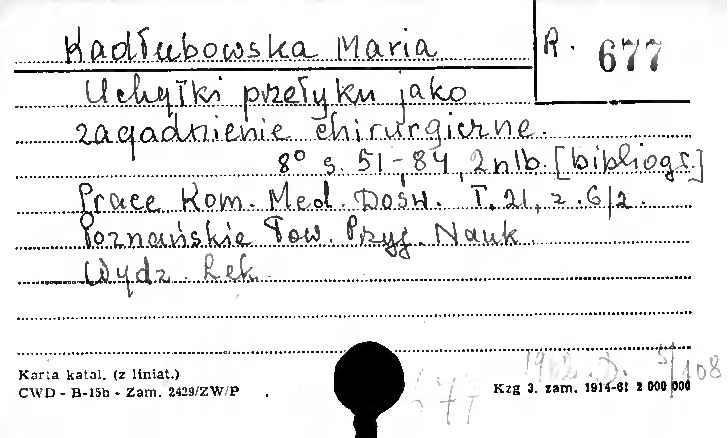 Kadłubowska Maria
R. 677
Uchyłki przełyku jako
zagadnienie chirurgiczne.
8° s. 51-84, 2 nlb. [bibliogr.]
Prace Kom. Med. Dośw. T. 21, z. 6/2.
Poznańskie Tow. Przyj. Nauk.
Wydz. Lek.
1962. D. 5/108
677
Karta katal. (z liniat.)
CWD - B-15b - Zam. 2429/ZW/P
Kzg 3. zam. 1914-61 2 000 000